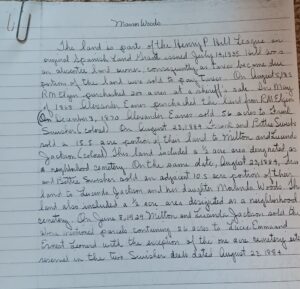 Mason Woods
The land is part of the Henry P. Hill League an
original Spanish Land Grant issued July 14, 1835. Hill was
an absentee land owner, consequently as taxes became due
portions of the land were sold to pay taxes. On August 5,
R.M. Elgin purchased 203 acres at a sheriff's sale. On May
of Alexander Eanes purchased the land from R.M. Elgin
On December 8, 1870 Alexander Eanes sold 50 acres to Frank
Swisher (colored). On August 23, 1884 Frank and Bettie Swisher
sold a 15.5 acre portion of their land to Milton and Lucinda
Jackson (colored). This land included a ½ acre area designated as
a neighborhood cemetery. On the same date, August 23, 1884, Frank
and Bettie Swisher sold an adjacent 10.5 acre portion of their
land to Lucinda Jackson and her daughter Malinda Woods. This
land also included a ½ acre area designated as a neighborhood
cemetery. On June 8, 1929 Milton and Lucinda Jackson sold the
above mentioned parcels containing 26 acres to Lucie Emma and
Ernest Leonard with the exception of the one acre cemetery site
reserved in the two Swisher deeds dated August 23, 1884.